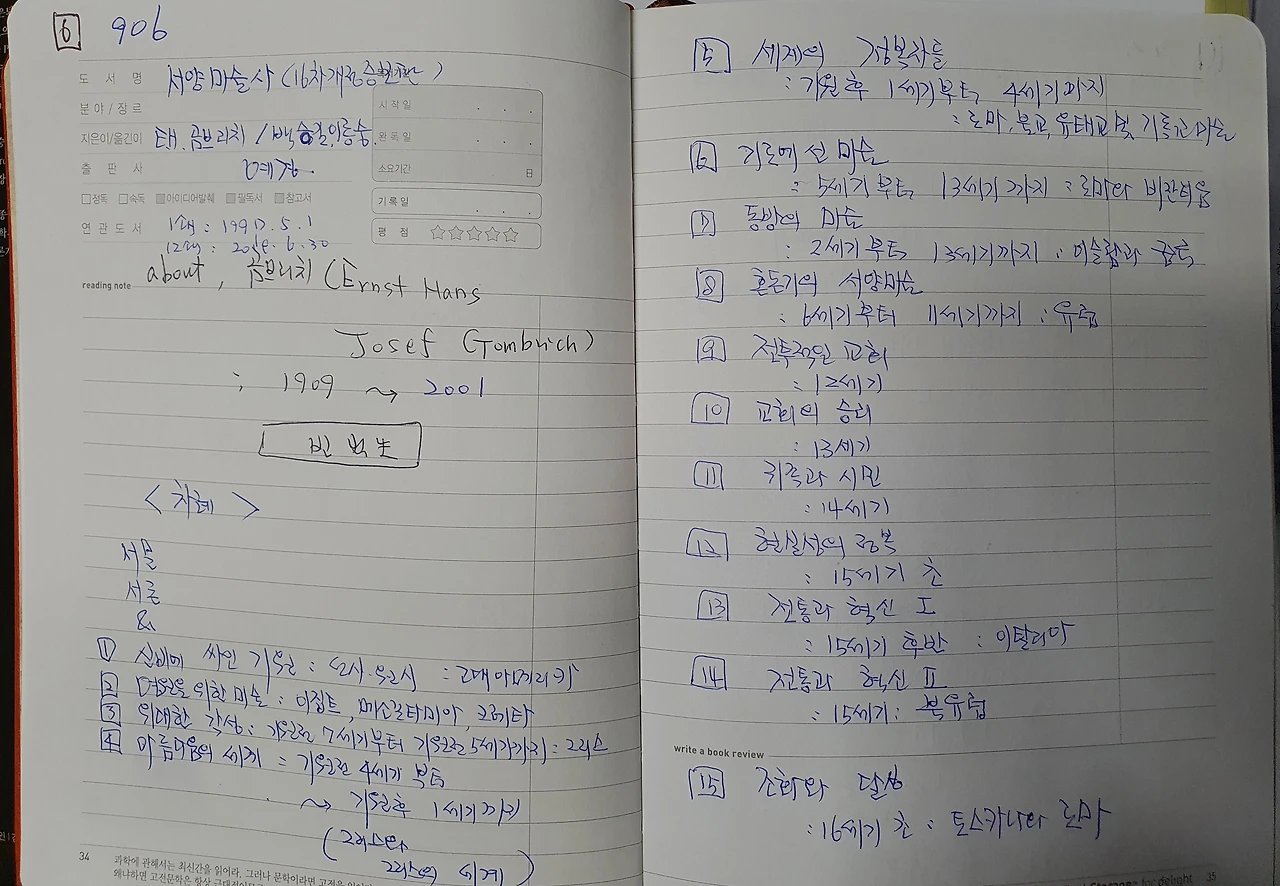 6 906
도 서 명 서양미술사 (16차개정증보판)
분야 / 장르
시 작 일 . . .
지은이/옮긴이 E.H. 곰브리치 / 백승길,이종숭
완 독 일 . . .
출 판 사 예경
소요기간 日
□정독 □속독 아이디어발췌 밀독서 참고서
기 록 일 . . .
연 관 도 서 1쇄 : 1997. 5. 1
평 점 ☆☆☆☆☆
6. 30
reading note about, 곰브리치 (Ernst Hans
Josef Gombrich)
; 1909 ~ 2001
< 차례 >
서문
서론
&
1 신비에 싸인 기원 : 선사·원시 : 고대 아메리카
2 영원을 위한 미술 : 이집트, 메소포타미아, 크레타
3 위대한 각성 : 기원전 7세기부터 기원전 5세기까지 : 그리스
4 아름다움의 세계 : 기원전 4세기 부터
~ 기원후 1세기까지
(그리스와
그리스의 세계)
34
과학에 관해서는 최신간을 읽어라. 그러나 문학이라면 고전을
5 세계의 정복자들
: 기원후 1세기부터 4세기까지
: 로마, 불교, 유태교 및 기독교 미술
6 기로에 선 미술
: 5세기부터 13세기까지 : 로마와 비잔티움
7 동방의 미술
: 2세기부터 13세기까지 : 이슬람과 중국
8 혼돈기의 서양미술
: 6세기부터 11세기까지 : 유럽
9 전투적인 교회
: 12세기
10 교회의 승리
: 13세기
11 귀족과 시민
: 14세기
12 현실성의 정복
: 15세기 초
13 전통과 혁신 I
: 15세기 후반 : 이탈리아
14 전통과 혁신 II
: 15세기 : 북유럽
write a book review
15 조화의 달성
: 16세기 초 : 토스카나와 로마
for delight 35